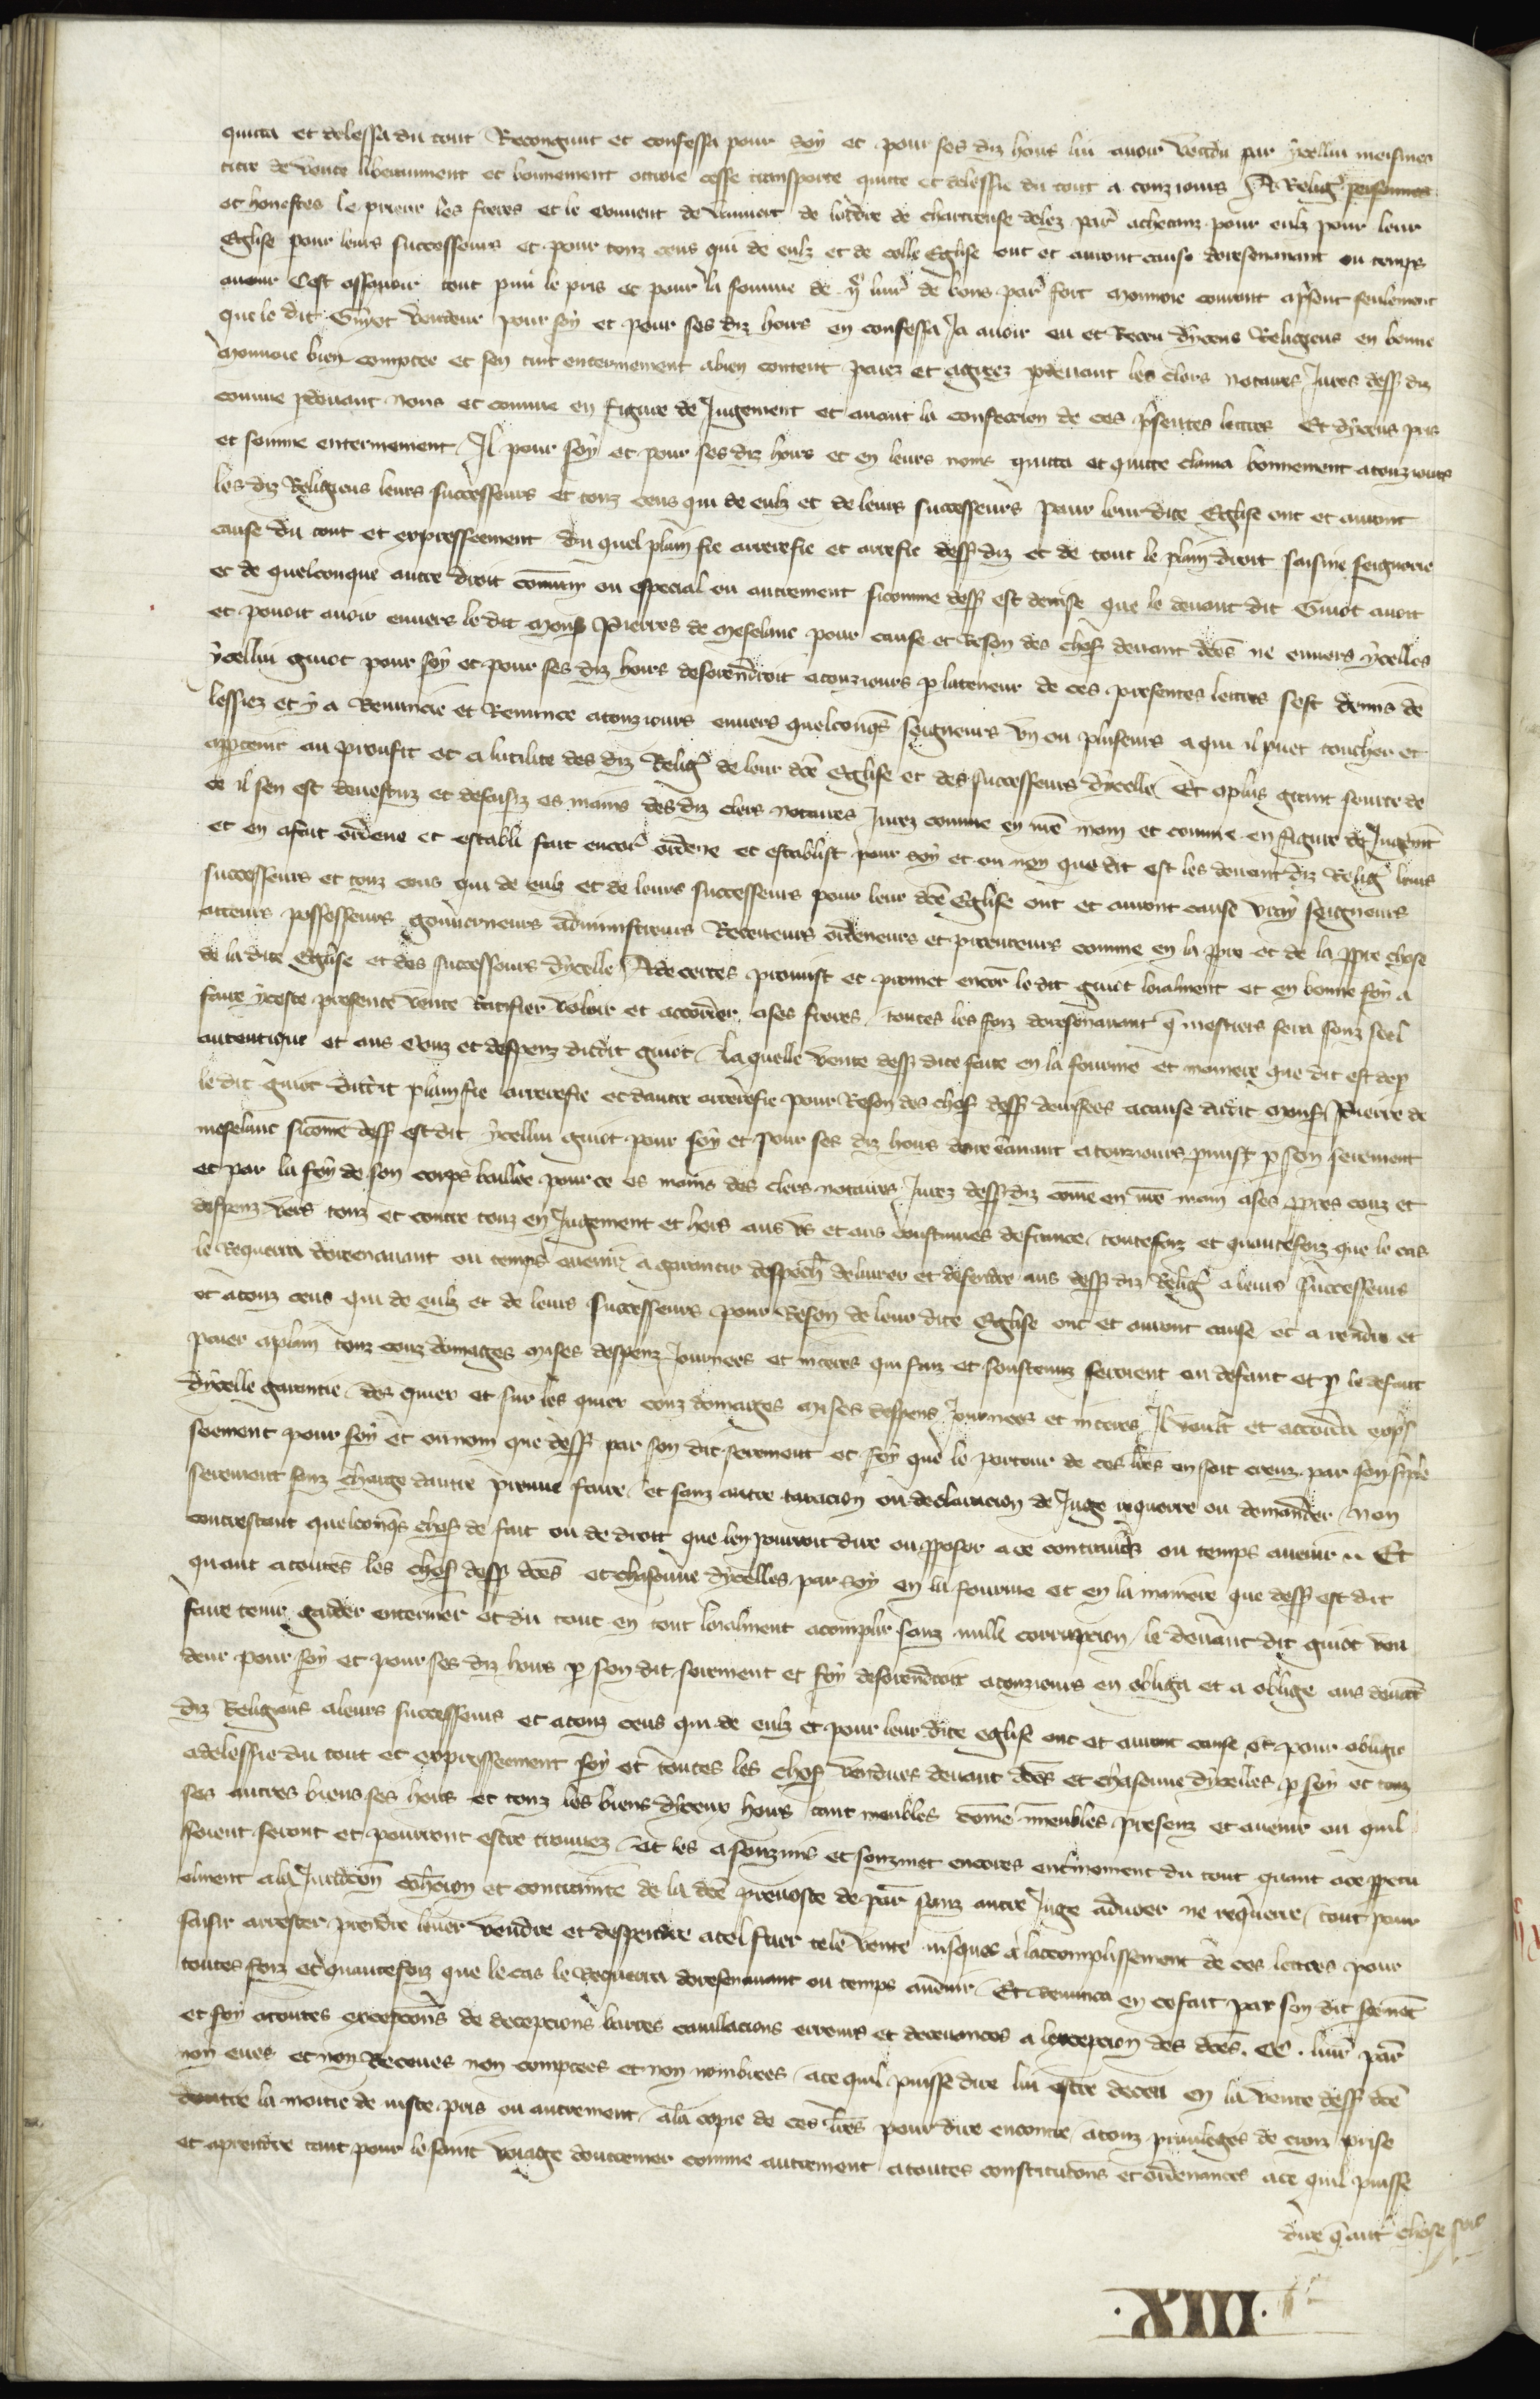 quicta et delessa du tout Recongnut et confessa pour soy et pour ses diz hoirs lui avoir vendu par ycellui meismes
titre de vente liberaument et bonnement ottroie cesse transporte quitte et delessie du tout a touz iours A Relig' personnes
et honestes le prieur les freres et le couvent de vauvert de lordre de chartreuse delez par' achetanz pour eulz pour leur
Eglise pour leurs successeurs et pour touz ceus qui de eulz et de celle Eglise ont et auront cause doresenavant ou temps
avenir Cest assavoir tout pmi le pris et pour la somme de livr' de bons par' fort monnoie courant apsent seulement
que le dit Guiot vendeur pour soy et pour ses diz hoirs en confessa Ja avoir eu et Receu dyceus Religieus en bonne
monnoie bien comptee et sen tint enterinement abien content paiez et agreez pdevant les clers notaires Jurez dess diz
comme pdevant nous et comme en figure de Jugement et avant la confeccion de ces psentes lettres Et dyceus pris
et somme enterinement Il pour soy et pour ses diz hoirs et en leurs noms quitta et quitte clama bonnement atouziours
les diz Religieus leurs successeurs et touz ceus qui de eulz et de leurs successeurs pour leur dite Eglise ont et auront
cause du tout et expresseement du quel plain fie arrerefie et arrefie dess diz et de tout le plain droit saisine seigneurie
et de quelconque autre droit commun ou especial ou autrement sicomme dess est devise que le devant dit Guiot avoit
et povoit avoir envers le dit mons Pierres de meselanc pour cause et Reson des chos devant dces ne envers ycelles
ycellui guiot pour soy et pour ses diz hoirs desorendroit atouziours p lateneur de ces presentes lettres sest demis de
lessiez et y a Renuncie et Renunce atouziours envers quelconqs seigneurs un ou pluseurs a qui il puet toucher et
apptenir au proufit et a lutilite des diz Relig' de leur dce Eglise et des successeurs dycelle Et aplus grant seurte de
ce il sen est devestuz et desaisiz es mains des diz clers notaires Jurez comme en nre main et comme en figure de Jugemt
et en afait ordene et establi fait encor' ordene et establist pour soy et ou nom que dit est les devant diz Relig' leurs
successeurs et touz ceus qui de eulz et de leurs successeurs pour leur dce Eglise ont et auront cause vray seigneurs
acteurs possesseurs gouverneurs administreurs Receveurs ordeneurs et procureurs comme en la ppre et de la ppre chose
de la dite Eglise et des successeurs dycelle A de certes promist et promet encor le dit guiot loialment et en bonne foy a
faire yceste presente vente Ratifier voloir et accorder ases freres toutes les foiz doresenavant q mestiers sera souz seel
autentique et aus couz et despenz dudit guiot La quelle vente dess dite faite en la fourme et maniere que dit est dep
le dit guiot dudit plainfie arrerefie et dautre arrerefie pour Reson des chos dess devisees acause dudit mons Pierre de
meselanc sicome dess est dit ycellui guiot pour soy et pour ses diz hoirs doresenavant atouziours pmist p son serement
et par la foy de son corps baillee pour ce es mains des clers notaires Jurez dess diz come en nre main ases ppres couz et
despenz vers touz et contre touz en Jugement et hors aus us et aus coustumes de france toutesfoiz et quantesfoiz que le cas
le Requerra doresenavant ou temps avenir a garantir despech' delivrer et defendre aus dess diz Relig' a leurs successeurs
et atouz ceus qui de eulz et de leurs successeurs pour Reson de leur dite Eglise ont et auront cause et a rendre et
paier aplain touz couz domages mises despenz Journees et interes qui faiz et soustenuz seroient en defaut et p le defaut
dycelle garantie des quiex et sur les quiex couz domages mises despens Journees et interes Il voult et accorda exps
seement pour soy et ounom que dess par son dit serement et foy que le porteur de ces lres en soit creuz par son siple
serement sanz charge dautre preuve faire et sanz autre taxacion ou declaracion de Juge requerre ou demander Non
contrestant quelconqs chos de fait ou de droit que len pourroit dire ou pposer a ce contraires ou temps avenir Et
quant atoutes les chos dess dces et chascune dycelles par soy en la fourme et en la maniere que dess est dit
faire tenir garder enteriner et du tout en tout loialment acomplir sanz nulle corrupcion le devant dit guiot ven
deur pour soy et pour ses diz hoirs p son dit serement et foy desorendroit atouziours en obliga et a oblige aus devant
diz Religieus aleurs successeurs et atouz ceus qui de eulz et pour leur dite eglise ont et auront cause et pour obligie
adelessie du tout et expresseement soy et toutes les chos vendues devant dces et chascune dycelles p soy et touz
ses autres biens ses hoirs et touz les biens dyceux hoirs tant meubles come inmeubles presenz et avenir ou quil
soient seront et pourront estre trouvez et les asouzmis et souzmet encores entinement du tout quant ace ppetu
elment ala Juridicon cohercion et contrainte de la dce prevoste de par' sanz autre Juge advoer ne requerre tout pour
saisir arrester prendre lever vendre et despendre atel fuer tele vente iusques a lacomplissement de ces lettres pour
toutes foiz et quantesfoiz que le cas le Requerra doresenavant ou temps avenir Et renunca en ce fait par son dit sermt
et foy atoutes excepcions de decepcions barres cavillacions erreurs et decevances a lexcepcion des dces livr' par'
non eues et non Receues non comptees et non nombrees ace quil puisse dire lui estre deceu en la vente dess dce
doutre la moitie de iuste pris ou autrement ala copie de ces lres pour dire encontre atouz privileges de croiz prise
et aprendre tant pour le saint voiage doutremer comme autrement atoutes constitucions et ordenances ace quil puisse
dire q aut' chose soit
·XIII·